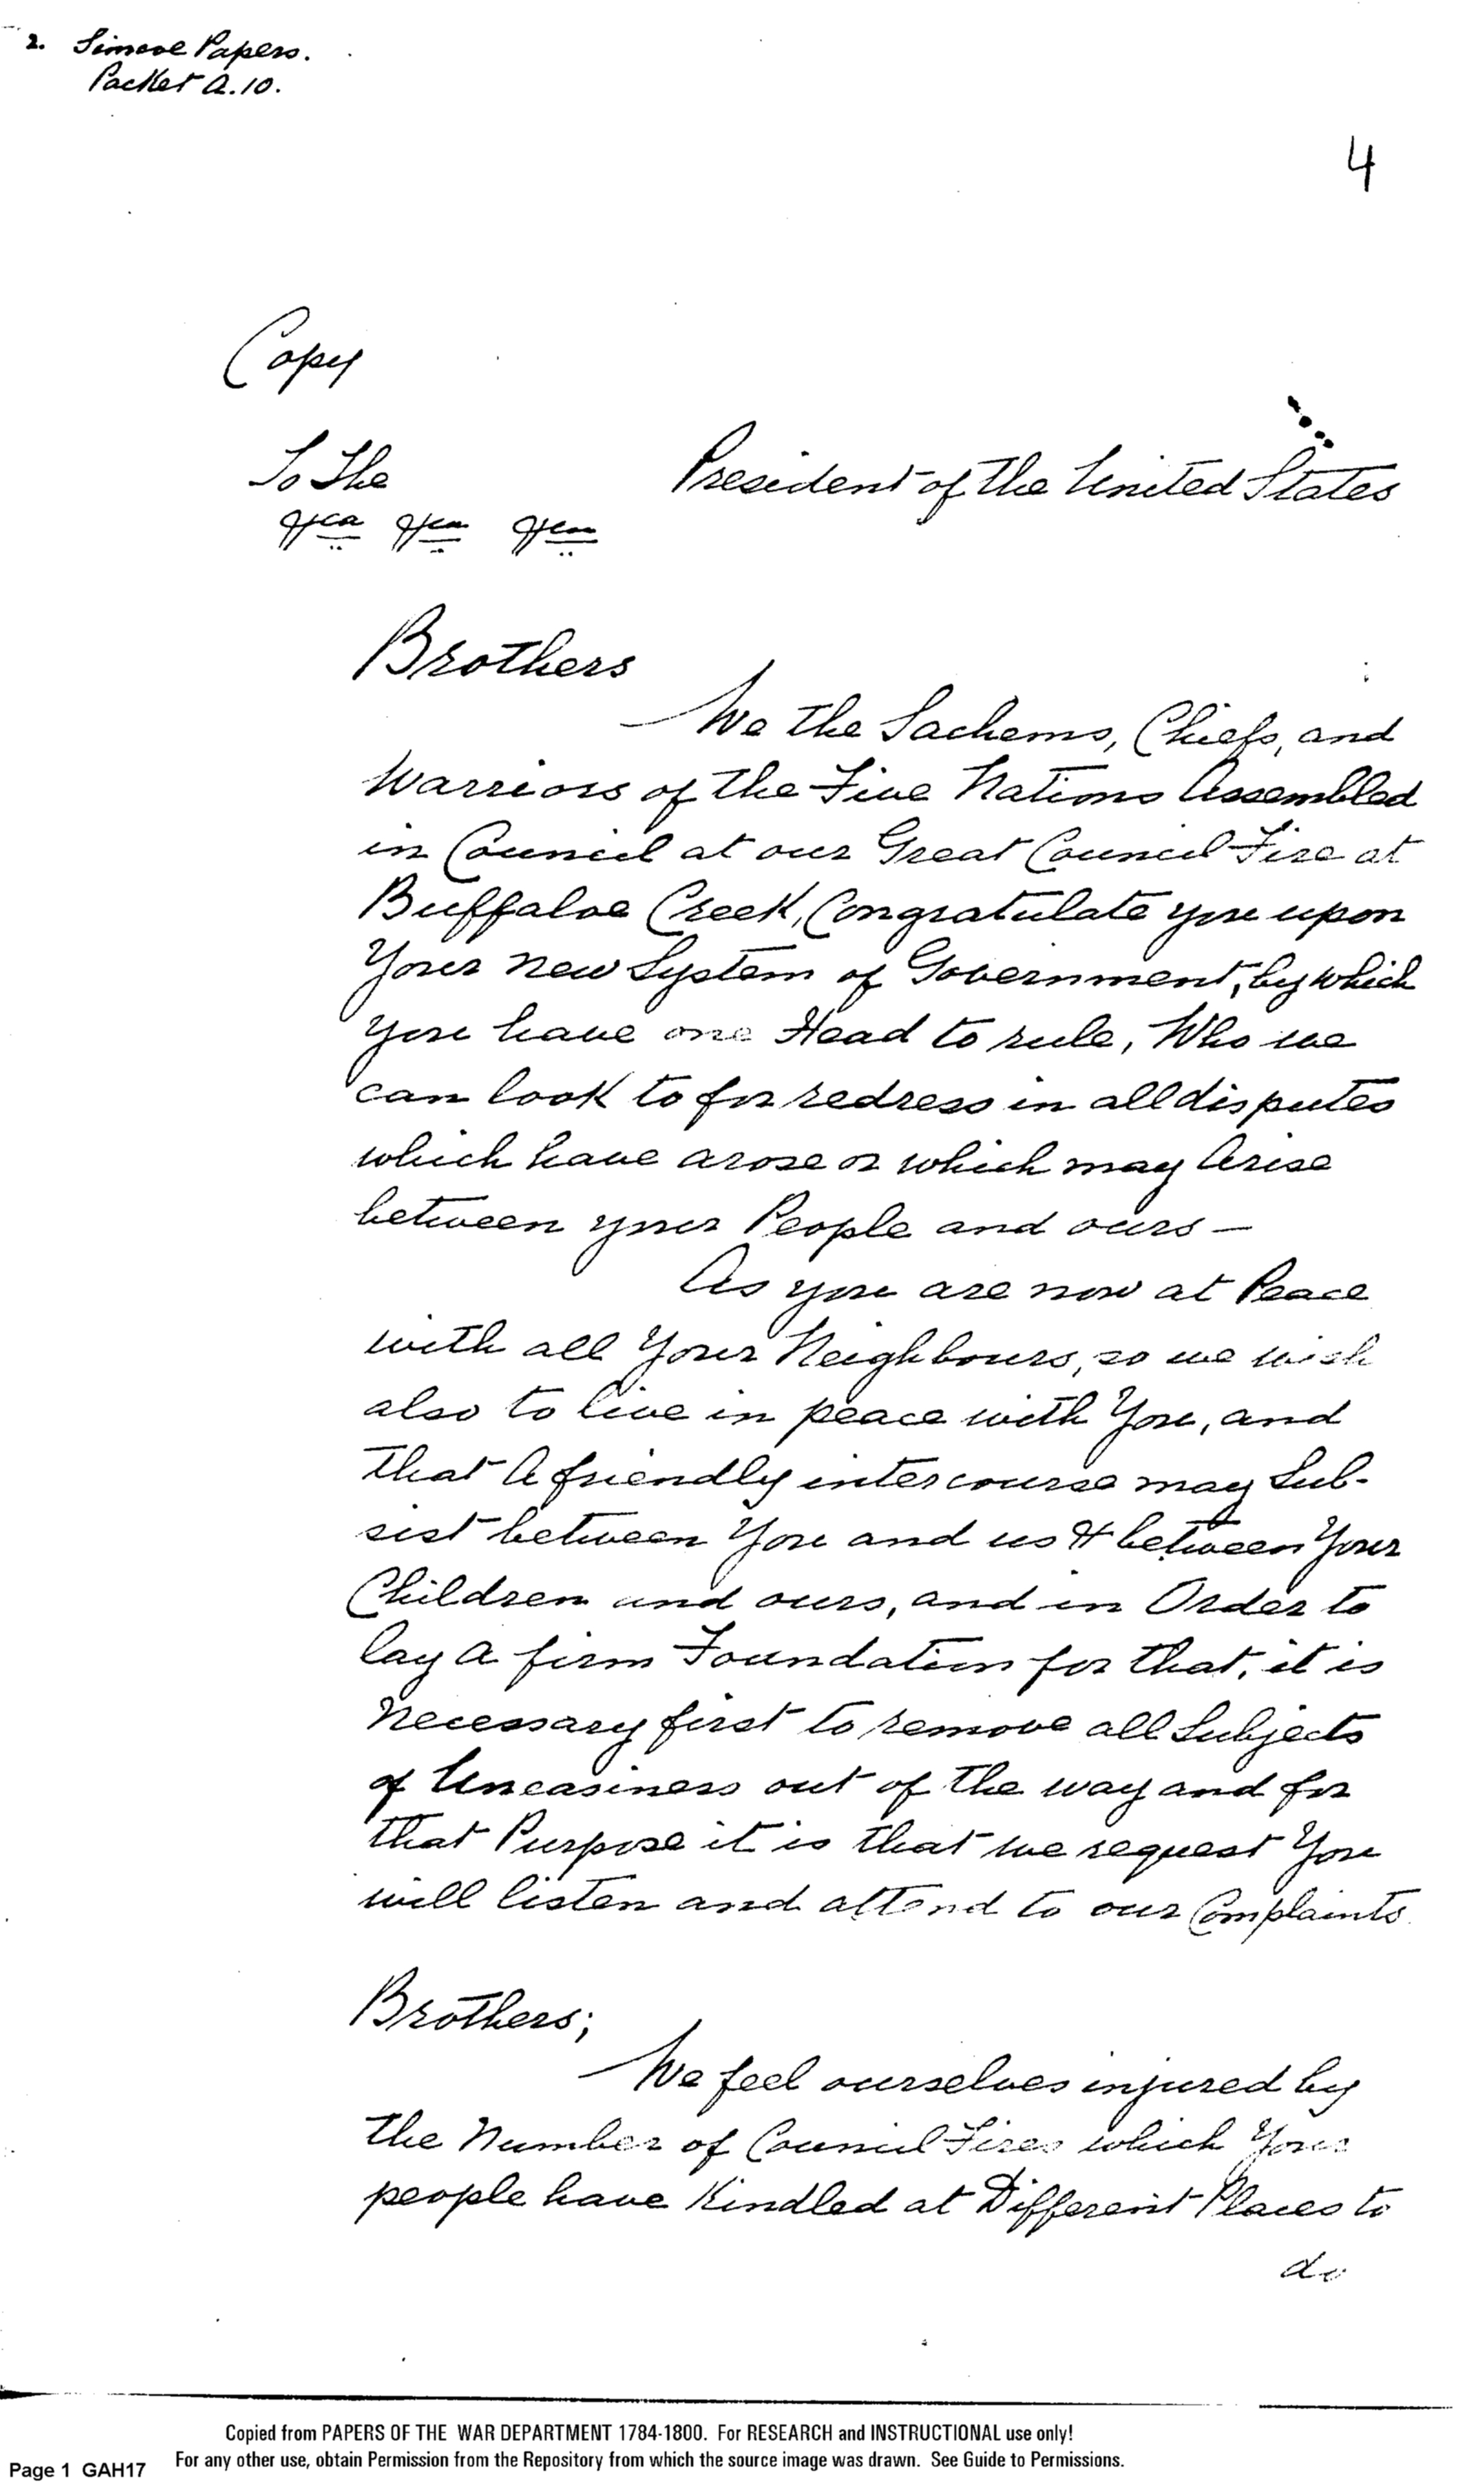 2. Simcoe Papers.
Packet A.10.
4
Copy
To The
President of the United States
Brothers
We the Sachems, Chiefs, and
Warriors of the Five Nations Assembled
in Council at our Great Council Fire at
Buffaloe Creek, Congratulate you upon
Your new System of Government, by which
you have one Head to rule, Who we
can look to for redress in all disputes
which have arose or which may Arise
between your People and ours —
As you are now at Peace
with all Your Neighbours, so we wish
also to live in peace with You, and
that A friendly intercourse may Sub-
sist between You and us & between Your
Children and ours, and in Order to
lay a firm Foundation for that, it is
necessary first to remove all Subjects
of Uneasiness out of the way and for
that Purpose it is that we request You
will listen and attend to our Complaints.
Brothers;
We feel ourselves injured by
the Number of Council Fires which Your
people have Kindled at Different Places to
do
Copied from PAPERS OF THE WAR DEPARTMENT 1784-1800. For RESEARCH and INSTRUCTIONAL use only!
Page 1 GAH17 For any other use, obtain Permission from the Repository from which the source image was drawn. See Guide to Permissions.